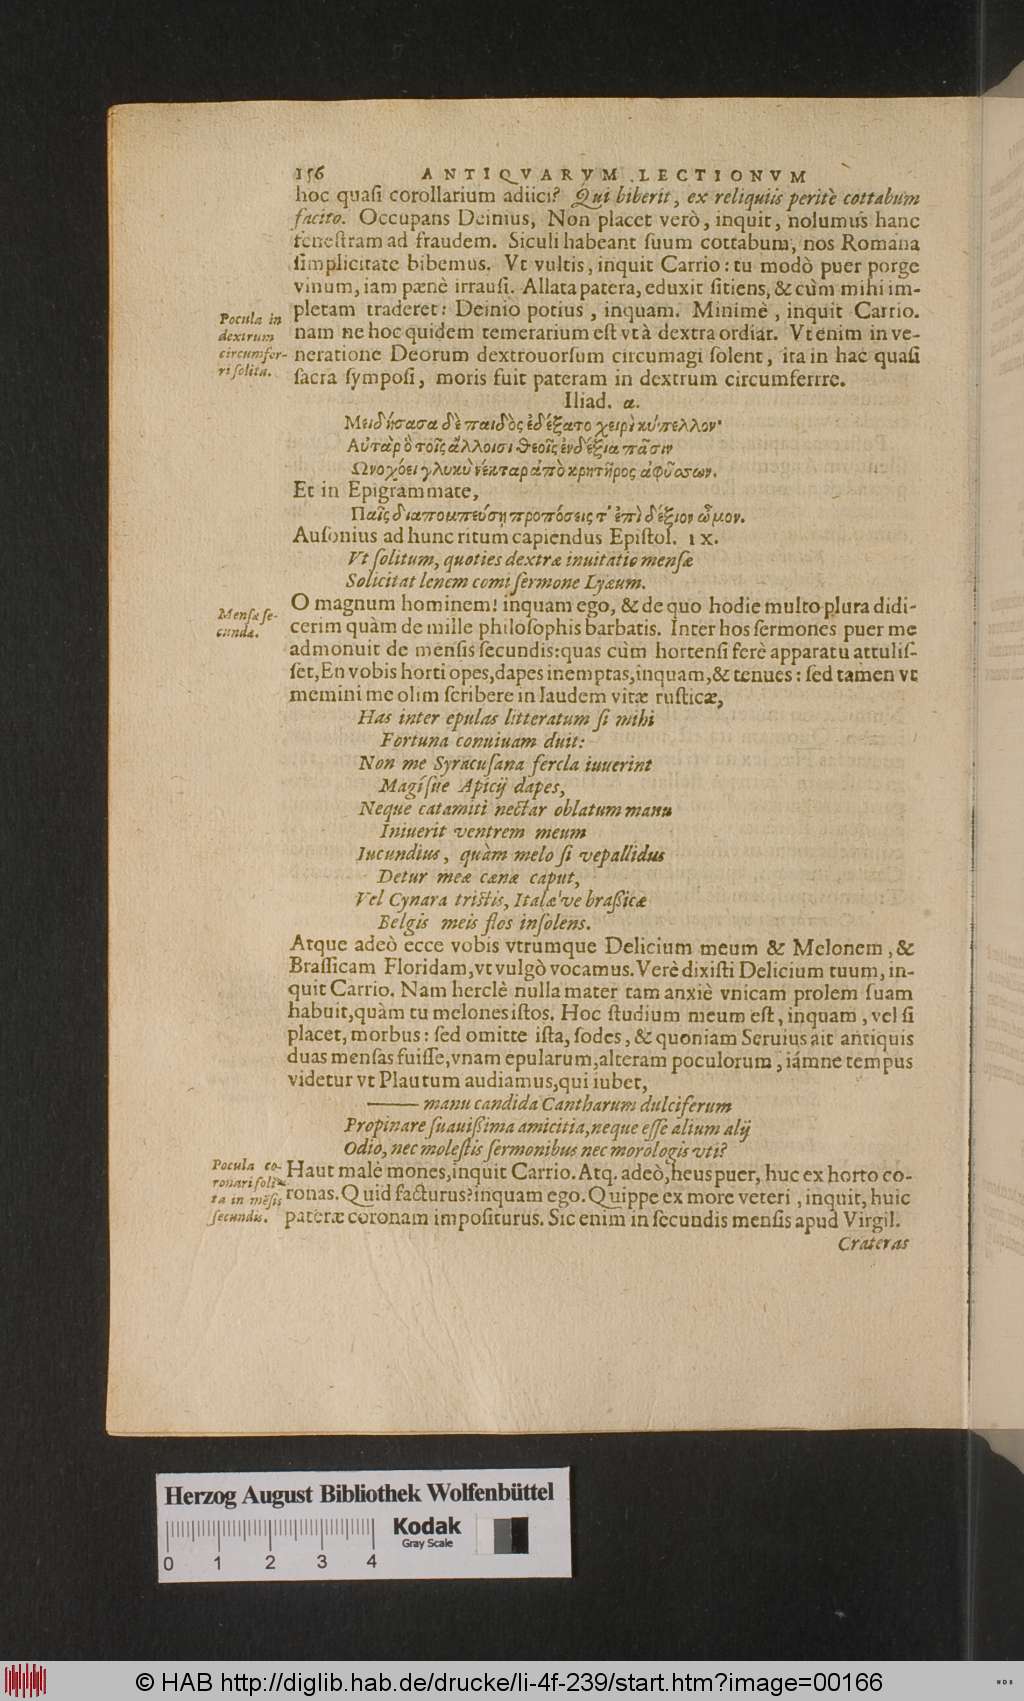 156 ANTIQVARVM LECTIONVM
hoc quaſi corollarium adiici? Qui biberit, ex reliquiis peritè cottabum
facito. Occupans Deinius, Non placet verò, inquit, nolumus hanc
feneſtram ad fraudem. Siculi habeant ſuum cottabum, nos Romana
ſimplicitate bibemus. Vt vultis, inquit Carrio: tu modò puer porge
vinum, iam pænè irrauſi. Allata patera, eduxit ſitiens, & cùm mihi im-
pletam traderet: Deinio potius, inquam. Minimè, inquit Carrio.
nam ne hoc quidem temerarium eſt vt à dextra ordiar. Vt enim in ve-
neratione Deorum dextrouorſum circumagi ſolent, ita in hac quaſi
ſacra ſympoſi, moris fuit pateram in dextrum circumferrre.
Pocula in
dextrum
circumfer-
ri ſolita.
Iliad. α.
Μειδήσασα δὲ παιδὸς ἐδέξατο χειρὶ κύπελλον·
Αὐτὰρ ὁ τοῖς ἄλλοισι θεοῖς ἐνδέξια πᾶσιν
Ωνοχόει γλυκὺ νέκταρ ἀπὸ κρητῆρος ἀφύσσων.
Et in Epigrammate,
Παῖς διαπομπεύσῃ προπόσεις τ' ἐπὶ δέξιον ὦμον.
Auſonius ad hunc ritum capiendus Epiſtol. IX.
Vt ſolitum, quoties dextræ inuitatio menſæ
Solicitat lenem comi ſermone Lyæum.
O magnum hominem! inquam ego, & de quo hodie multo plura didi-
cerim quàm de mille philoſophis barbatis. Inter hos ſermones puer me
admonuit de menſis ſecundis: quas cùm hortenſi ferè apparatu attuliſ-
ſet, En vobis horti opes, dapes inemptas, inquam, & tenues: ſed tamen vt
memini me olim ſcribere in laudem vitæ ruſticæ,
Menſæ ſe-
cundæ.
Has inter epulas litteratum ſi mihi
Fortuna conuiuam duit:
Non me Syracuſana fercla iuuerint
Magiſue Apicij dapes,
Neque catamiti nectar oblatum manu
Iniuerit ventrem meum
Iucundius, quàm melo ſi vepallidus
Detur meæ cænæ caput,
Vel Cynara triſtis, Italæ've braßicæ
Belgis meis flos inſolens.
Atque adeò ecce vobis vtrumque Delicium meum & Melonem, &
Braſſicam Floridam, vt vulgò vocamus. Verè dixiſti Delicium tuum, in-
quit Carrio. Nam herclè nulla mater tam anxiè vnicam prolem ſuam
habuit, quàm tu melones iſtos. Hoc ſtudium meum eſt, inquam, vel ſi
placet, morbus: ſed omitte iſta, ſodes, & quoniam Seruius ait antiquis
duas menſas fuiſſe, vnam epularum, alteram poculorum, iámne tempus
videtur vt Plautum audiamus, qui iubet,
—— manu candida Cantharum dulciferum
Propinare ſuauißima amicitia, neque eſſe alium alij
Odio, nec moleſtis ſermonibus nec morologis vti?
Haut malè mones, inquit Carrio. Atq. adeò, heus puer, huc ex horto co-
ronas. Quid facturus? inquam ego. Quippe ex more veteri, inquit, huic
pateræ coronam impoſiturus. Sic enim in ſecundis menſis apud Virgil.
Pocula co-
ronari ſoli-
ta in mẽſis
ſecundis.
Crateras
Herzog August Bibliothek Wolfenbüttel
Kodak
Gray Scale
0 1 2 3 4
© HAB http://diglib.hab.de/drucke/li-4f-239/start.htm?image=00166